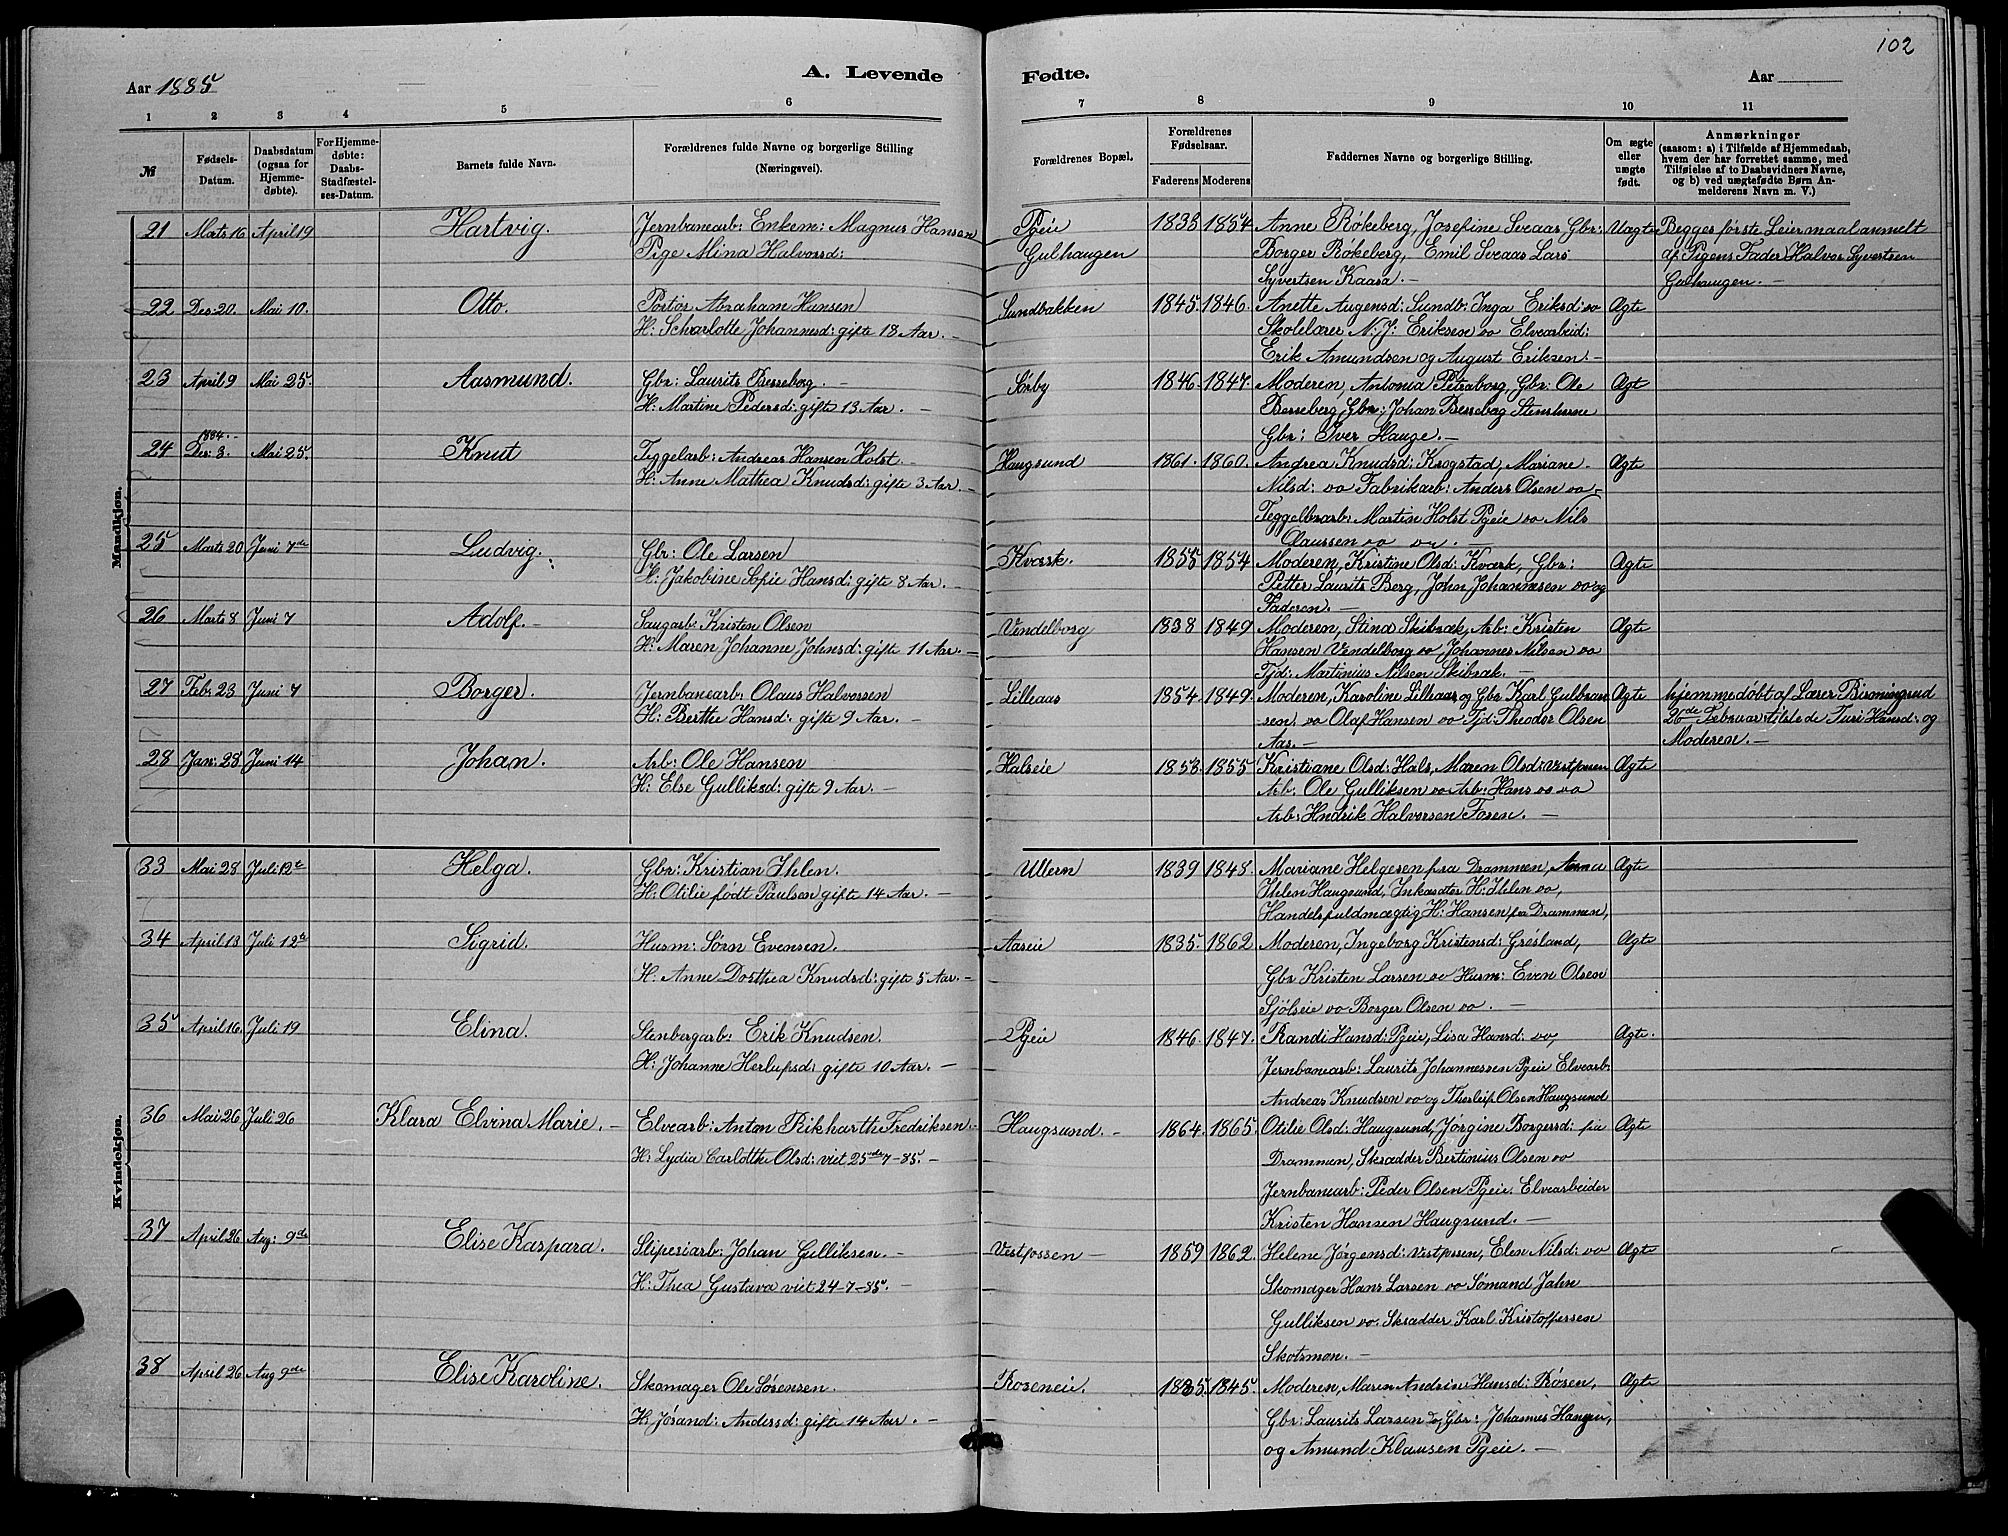 102
Aar 1885
A. Levende Fødte.
Aar
1 2 3 4 5 6 7 8 9 10 11
№
Fødsels-Datum.
Daabsdatum (ogsaa for Hjemmedøbte).
For Hjemmedøbte: Daabs-Stadfæstelses-Datum.
Barnets fulde Navn.
Forældrenes fulde Navne og borgerlige Stilling (Næringsvei).
Forældrenes Bopæl.
Forældrenes Fødselsaar.
Faderens Moderens
Faddernes Navne og borgerlige Stilling.
Om ægte eller uægte født.
Anmærkninger (saasom: a) i Tilfælde af Hjemmedaab, hvem der har forrettet samme, med Tilføielse af to Daabsvidners Navne, og b) ved uægtefødte Børn Anmelderens Navn m. V.)
Mandkjøn.
21 Marts 16 April 19 Hartvig. Jernbanearb: Enkem: Magnus Hansen Pgeie 1833 1854 Anne Røkeberg, Josefine Sveaas Gbr: Uægte Begges første Leiermaal anmelt
Pige Mina Halvorsd: Gulhaugen Borger Røkeberg, Emil Sveaas Lars af Pigens Fader Halvor Syvertsen
Syvertsen Kaasa. — Gulhaugen. —
22 Des: 20. Mai 10. Otto. Portør Abraham Hansen Sundbakken 1845. 1846. Anette Augensd: Sundb: Inga Eriksd: oo Ægte
H: Scharlotte Johannesd: gifte 18 Aar. — Skolelærer N: J: Eriksen oo Elvearbeid:
Erik Amundsen og August Eriksen. —
23 April 9 Mai 25. Aasmund. Gbr: Laurits Besseberg. — Sørby 1846. 1847. Moderen, Antonia Petraborg, Gbr: Ole Ægt
H: Martine Pedersd: gifte 13 Aar. — Besseberg, Gbr: Johan Besseberg Stenshorne
Gbr: Iver Hauge. —
24 1884. Des: 3. Mai 25. Knut Teggelarb: Andreas Hansen Holst. — Haugsund 1861. 1860. Andrea Knudsd: Krogstad, Mariane Ægte
H: Anne Mathea Knudsd: gifte 3 Aar. — Nilsd: oo Fabrikarb: Anders Olsen oo
Teggelbrarb: Martin Holst Pgeie oo Nils
Claussen oo oo. —
25 Marts 20 Juni 7de Ludvig. Gbr: Ole Larsen Kværk. 1855 1854 Moderen, Kristine Olsd: Kværk, Gbr: Ægte
H: Jakobine Sofie Hansd: gifte 8 Aar. — Petter Laurits Berg, John Johannesen oo og
Faderen. —
26 Marts 8 Juni 7 Adolf. — Saugarb: Kristen Olsen Vendelborg 1838 1849 Moderen, Stina Skibræk, Arb: Kristen Ægte
H: Maren Johanne Johnsd: gifte 11 Aar. — Hansen Vendelborg oo Johannes Nilsen oo
Tjd: Martinius Nilsen Skibræk. —
27 Feb: 23 Juni 7 Borger. Jernbanearb: Olaus Halvorsen Lilleaas 1854. 1849. Moderen, Karoline Lilleaas og Gbr Karl Gulbran Ægte hjemmedøbt af Lærer Birmingrud
H: Berthe Hansd: gifte 9 Aar. — sen oo Olaf Hansen oo Tjd: Theodor Olsen 26de Februar tilstede Turi Hansd: og
Aas. — Moderen. —
28 Jan: 28 Juni 14 Johan. Arb: Ole Hansen Halseie 1853. 1855 Kristiane Olsd: Hals, Maren Olsd: Vestfossen Ægte
H: Else Gulliksd: gifte 9 Aar. — Arb: Ole Gulliksen oo Arb: Hans oo oo
Arb: Hndrik Halvorsen Foren. —
Kvindekjøn.
33 Mai 28 Juli 12te Helga. Gbr: Kristian Ihlen. Ullern 1839 1848. Mariane Helgesen fra Drammen, Anna Ægte
H: Otilie født Paulsen gifte 14 Aar. — Ihlen Haugsund, Inkasatør H: Ihlen oo,
Handelsfuldmægtig H: Hansen fra Drammen,
34 April 13 Juli 12te Sigrid. Husm: Sørn Evensen. Aaseie 1835. 1862 Moderen, Ingeborg Kristensd: Grøsland, Ægte
H: Anne Dorthea Knudsd: gifte 5 Aar. — Gbr Kristen Larsen oo Husm: Even Olsen
Sjølseie oo Borger Olsen oo. —
35 April 16. Juli 19 Elina. Stenbergarb: Erik Knudsen. Pgeie 1846. 1847. Randi Hansd: Pgeie, Lisa Hansd: oo, Ægte.
H: Johanne Herlupsd: gifte 10 Aar. — Jernbanearb: Laurits Johannessen Pgeie Elvearb:
Andreas Knudsen oo og Thorleif Olsen Haugsund
36 Mai 26 Juli 26 Klara Elvina Marie. — Elvearb: Anton Rikharth Fredriksen. — Haugsund. — 1864. 1865. Otilie Olsd: Haugsund, Jørgine Borgersd: fra Ægte
H: Lydia Carlotthe Olsd: viet 25de 7-85. — Drammen, Skrædder Bertinius Olsen oo
Jernbanearb: Peder Olsen Pgeie. Elvearbeider
Kristen Hansen Haugsund. —
37 April 26 Aug: 9de Elise Kaspara. Stipesiarb: Johan Gulliksen. — Vestfossen — 1859 1862. Helene Jørgensd: Vestfssen, Elen Nilsd: oo Ægte
H: Thea Gustava viet 24-7-85. — Skomager Hans Larsen oo Sømand Jahn
Gulliksen oo. Skrædder Karl Kristoffersen
Skotsmon. —
38 April 26 Aug 9de Elise Karoline. Skomager Ole Sørensen. Roseneie. 1835. 1845. Moderen, Maren Andrin Hansd: Røsen, Ægte
H: Jørand: Andersd: gifte 14 Aar. — Gbr: Laurits Larsen do, Gbr: Johannes Haugen,
og Amund Klausen Pgeie. —